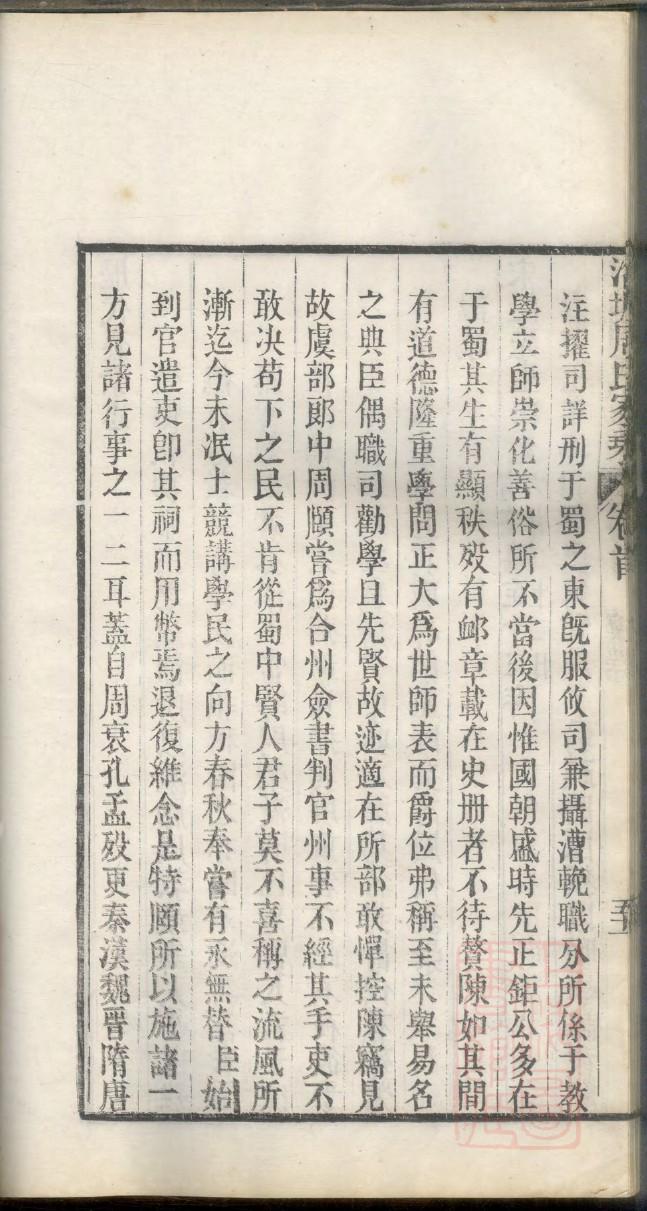 周氏家乘 卷首
注擢司詳刑于蜀之東旣服攸司兼攝漕輓職分所係于教
學立師崇化善俗所不當後因惟國朝盛時先正鉅公多在
于蜀其生有顯秩歿有邮章載在史册者不待贅陳如其間
有道德隆重學問正大爲世師表而爵位弗稱至未舉易名
之典臣偶職司勸學且先賢故迹適在所部敢憚控陳竊見
故虞部郎中周頤嘗爲合州僉書判官州事不經其手吏不
敢决苟下之民不肯從蜀中賢人君子莫不喜稱之流風所
漸迄今未泯士競講學民之向方春秋奉嘗有永無替臣始
到官遣吏卽其祠而用幣焉退復維念是特頤所以施諸一
方見諸行事之一二耳蓋自周衰孔孟歿更秦漢魏晉隋唐